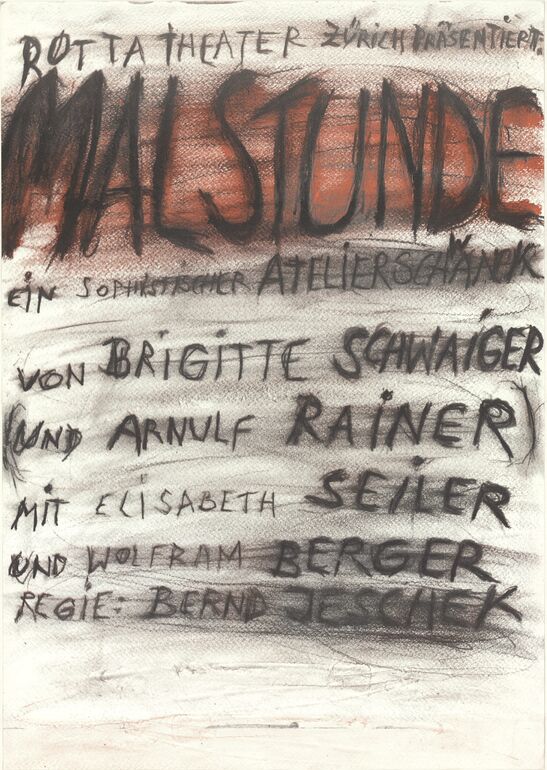 ROTTA THEATER ZÜRICH PRÄSENTIERT:
MALSTUNDE
EiN SOPHiSTiSCHER ATELiERSCHWÄNK
VON BRiGiTTE SCHWAiGER
(UND ARNULF RAiNER)
MiT ELiSABETH SEiLER
UND WOLFRAM BERGER
REGiE: BERND JESCHEK